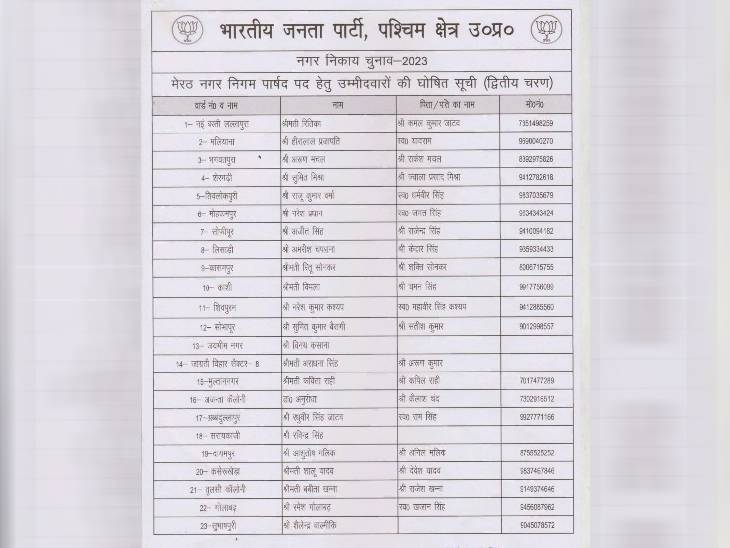 भारतीय जनता पार्टी, पश्चिम क्षेत्र उ०प्र०
नगर निकाय चुनाव-2023
मेरठ नगर निगम पार्षद पद हेतु उम्मीदवारों की घोषित सूची (द्वितीय चरण)
वार्ड नं0 व नाम नाम पिता / पति का नाम मो0नं0
1- नई बस्ती लल्लापुरा श्रीमती रितिका श्री कमल कुमार जाटव 7351498259
2- मलियाना श्री हीरालाल प्रजापति स्व0 यादराम 9690040270
3- भगवतपुरा श्री अरूण मचल श्री राकेश मचल 8392975826
4- शेरगढ़ी श्री सुमित मिश्रा श्री ज्वाला प्रसाद मिश्रा 9412782618
5- श्री राजू कुमार वर्मा स्व0 धर्मवीर सिंह 9837035679
6- मोहकमपुर श्री नरेश प्रधान स्व0 जगत सिंह 9834343424
7- सोफीपुर श्री अजीत सिंह श्री राजेन्द्र सिंह 9410094182
8- लिसाड़ी श्री अमरीश चपराना श्री केदार सिंह 9359334433
9- कासमपुर श्रीमती रितू सोनकर श्री शक्ति सोनकर 8006715755
10- काशी श्रीमती विमला श्री चमन सिंह 9917756099
11- शिवपुरम श्री नरेश कुमार कश्यप स्व0 महावीर सिंह कश्यप 9412885560
12- सोभापुर श्री सुमित कुमार बैरागी श्री सतीश कुमार 9012998557
13- जयभीम नगर श्री विनय कसाना
14- जाग्रती विहार सैक्टर- 8 श्रीमती अराधना सिंह श्री अरूण कुमार
15- मुल्ताननगर श्रीमती कविता राही श्री कपिल राही 7017477289
16- अजन्ता कॉलोनी डा0 अनुराधा श्री कैलाश चंद 7302916512
17- अब्दुल्लापुर श्री रघुवीर सिंह जाटव स्व0 राम सिंह 9927771166
18- सरायकाजी श्री रविन्द्र सिंह
19- दायमपुर श्री आशुतोष मलिक श्री अनिल मलिक 8755525252
20- कसेरूखेड़ा श्रीमती शालू यादव श्री देवेश यादव 9837467846
21- तुलसी कॉलोनी श्रीमती बबीता खन्ना श्री राजेश खन्ना 9149374646
22- गोलाबढ़ श्री रमेश गोलाबढ़ स्व0 खजान सिंह 9456087962
23- सुभाषपुरी श्री शैलेन्द्र वाल्मीकि 9045078572